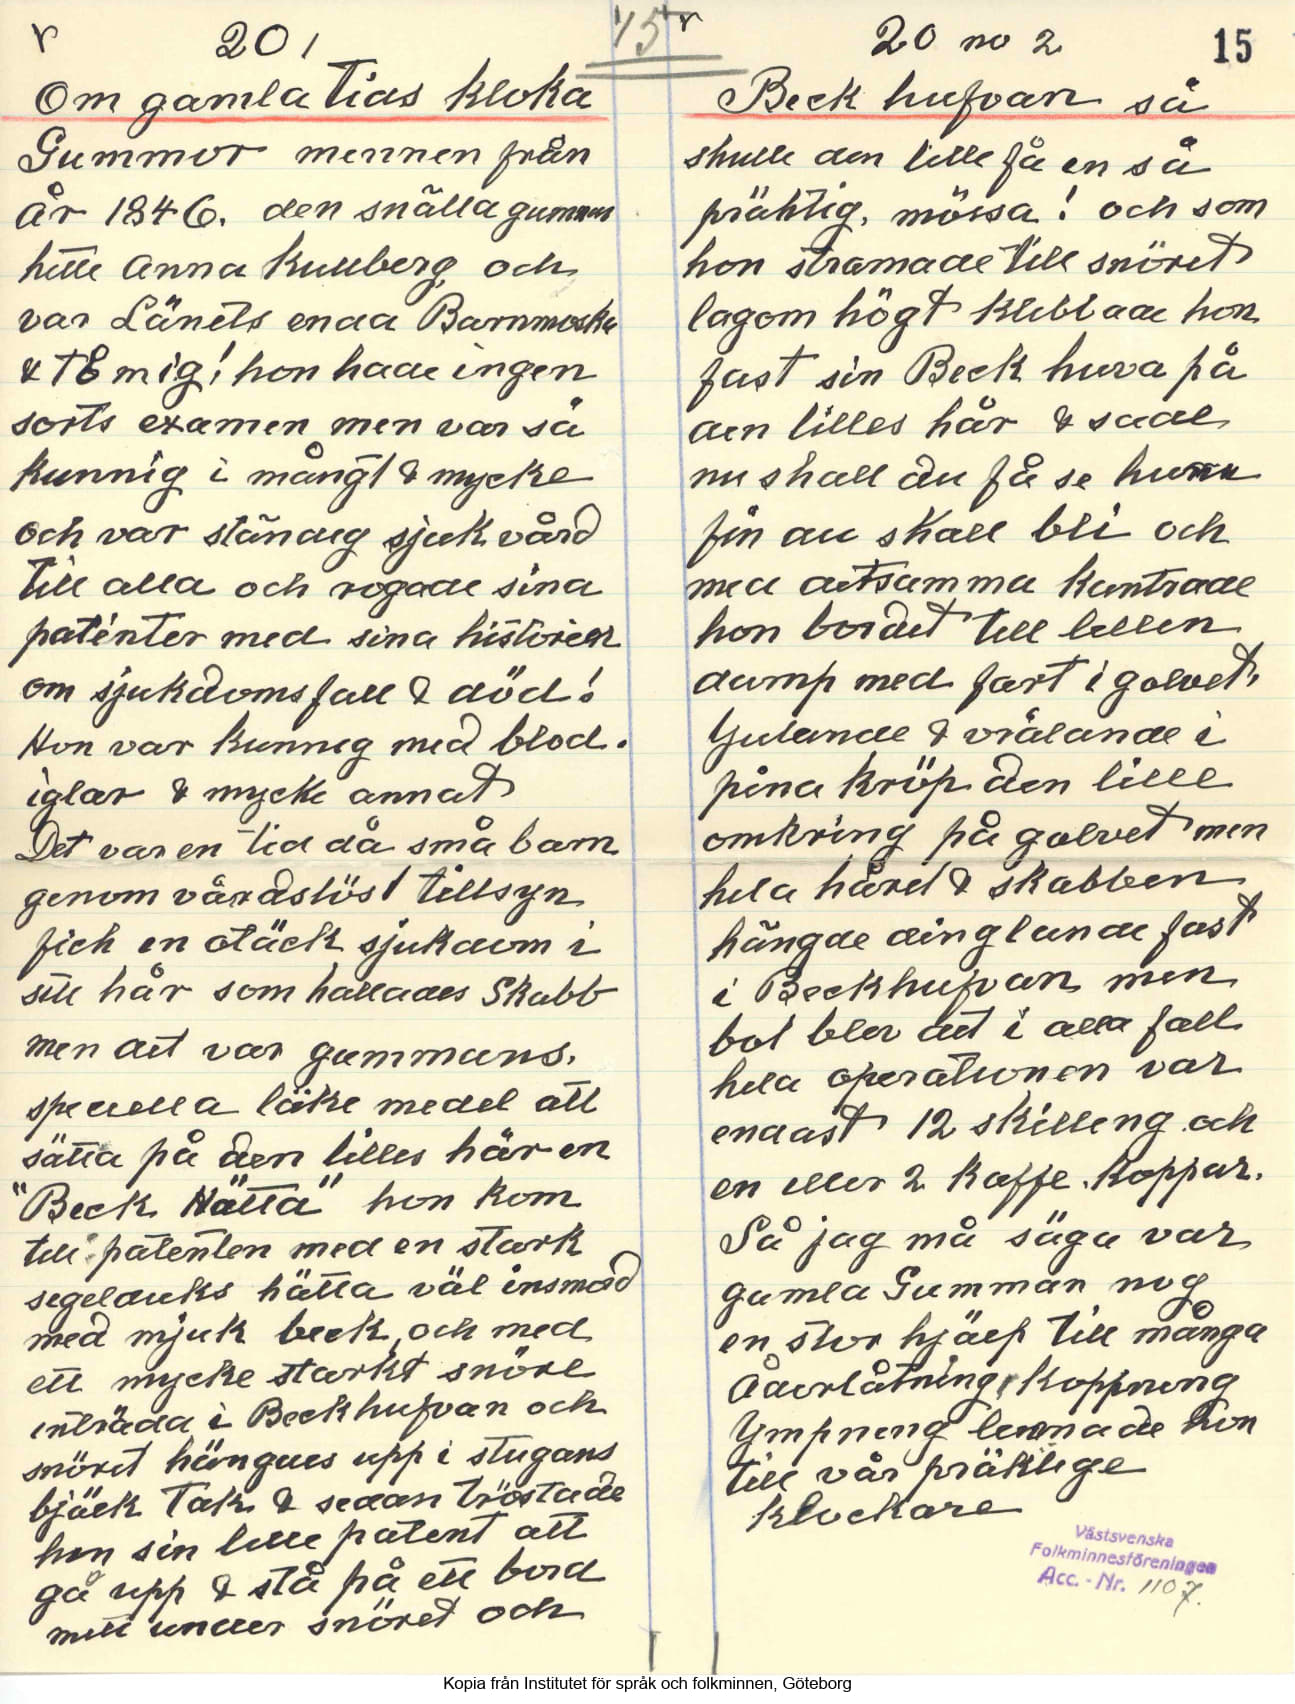 r 20 1
Om gamla Tias kloka
Gummor mennen från
år 1846. den snälla gumman
hette Anna Kullberg, och
var Länets enda Barnmoska
& TE mig! hon hade ingen
sorts examen men var så
kunnig i mångt & mycke
och var ständig sjuk vård
till alla och rogade sina
patienter med sina historier
om sjukdomsfall & död!
Hon var kunnig med blod.
iglar & mycke annat
Det var en tid då små barn
genom vårdslöst tillsyn
fick en otäck sjukdom i
sitt hår som kallades Skabb
men det var gummans.
speciella läke medel att
sätta på den lilles hår en
"Beck Hätta" hon kom
till patenten med en stark
segelduks hätta väl insmord
med mjuk beck, och med
ett mycke starkt snöre
inträdda i Beckhufvan och
snöret hängdes upp i stugans
bjäck Tak & sedan tröstade
hon sin lille patent att
gå upp & stå på ett bord
mitt under snöret och
15 r
20 no 2
15
Beck hufvan så
skulle den lille få en så
präktig, mössa! och som
hon stramade till snöret
lagom högt klibbade hon
fast sin Beck huva på
den lilles hår & sade
nu skall du få se huru
fin du skall bli och
med detsamma kantrade
hon bordet till lillen
damp med fart i golvet,
Gulande & vrålande i
pina kröp den lille
omkring på golvet men
hela håret & skabben
hängde dinglande fast
i Beckhufvan men
bot blev det i alla fall
hela operationen var
endast 12 skilling och
en eller 2 kaffe. koppar.
Så jag må säga var
gamla Gumman nog
en stor hjälp till många
Åderlåtning, Koppning
Ympning lemnade hon
till vår präktige
klockare
Västsvenska
Folkminnesföreningen
Acc. - Nr. 1107.
Kopia från Institutet för språk och folkminnen, Göteborg